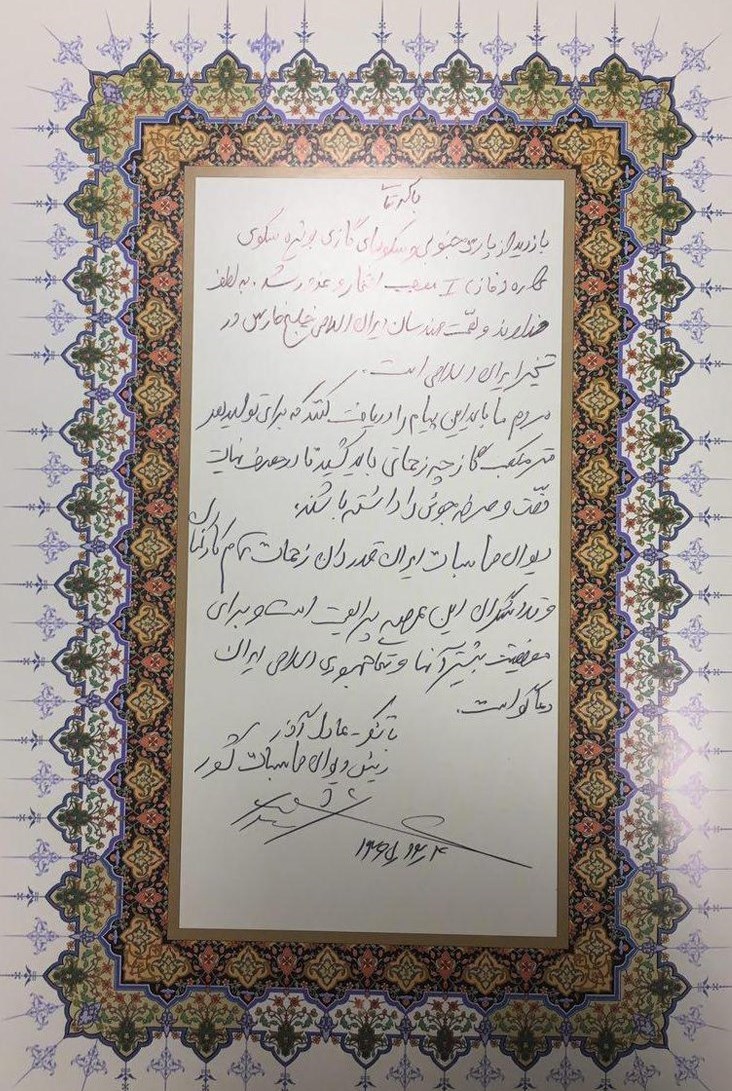 بازدید از پارس جنوبی و سکوهای گازی بویژه سکوی
موجب افتخار و غرور شد. به لطف
خداوند و همت مهندسان ایران اسلامی خلیج فارس در
تسخیر ایران اسلامی است.
مردم ما باید این پیام را دریافت کنند که برای تولید هر
متر مکعب گاز چه زحماتی باید کشید تا در مصرف نهایت
دقت و صرفه جوئی را داشته باشند.
دیوان محاسبات ایران قدردان زحمات تمام کارکنان
و تلاشگران این عرصه پر اهمیت است و برای
موفقیت بیشتر آنها و نظام جمهوری اسلامی ایران
دعاگو است.
با تشکر - عادل آذر
رئیس دیوان محاسبات کشور